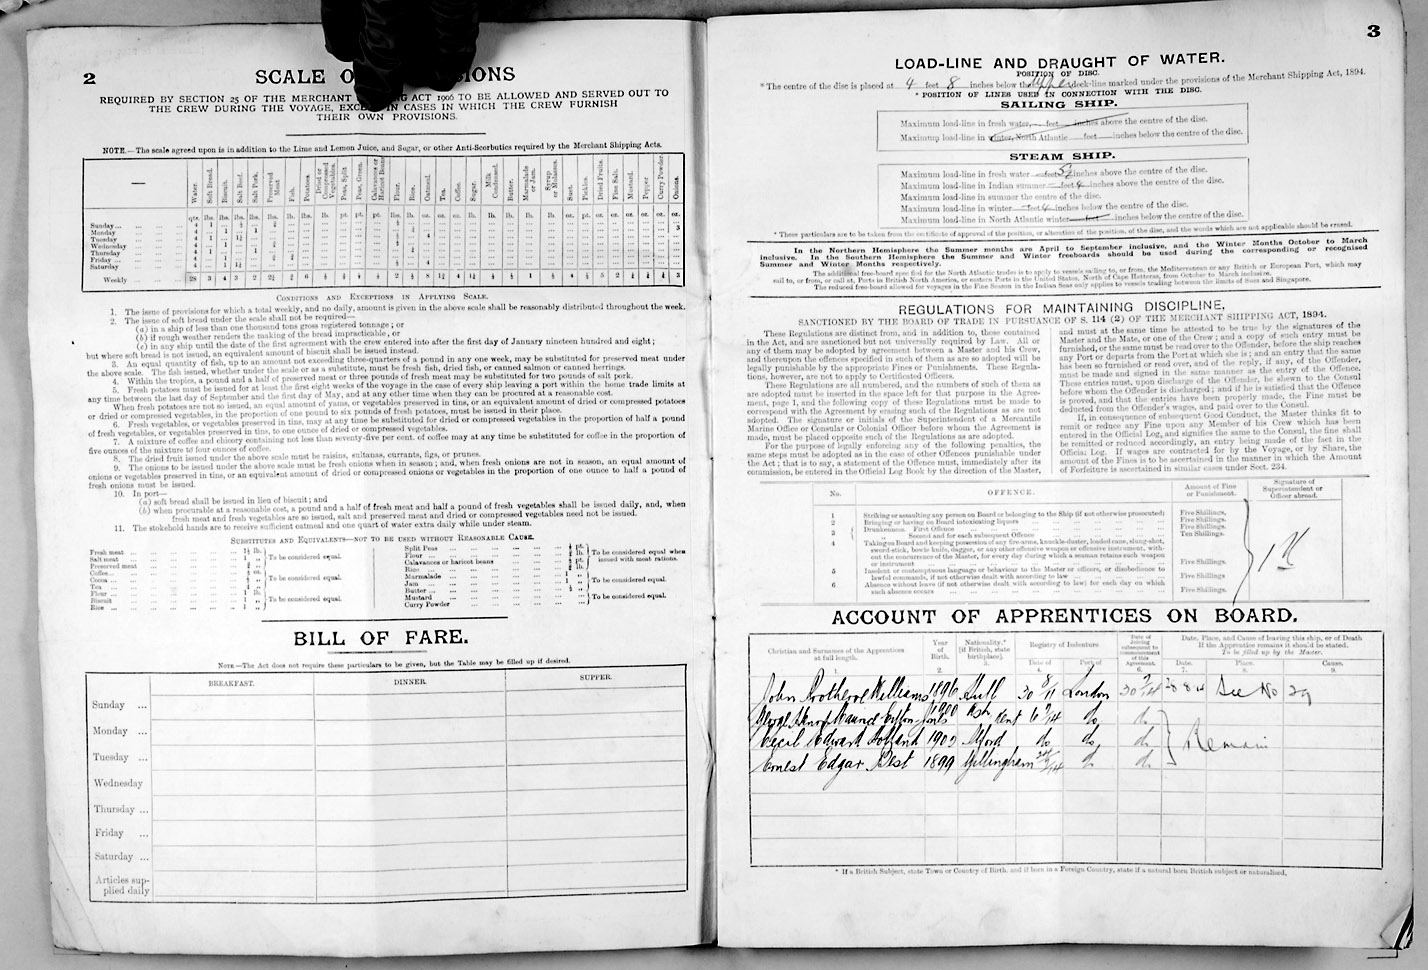 2
SCALE O
IONS
REQUIRED BY SECTION 25 OF THE MERCHANT
ACT 1906 TO BE ALLOWED AND SERVED OUT TO
THE CREW DURING THE VOYAGE, EXCE
IN CASES IN WHICH THE CREW FURNISH
THEIR OWN PROVISIONS.
NOTE.—The scale agreed upon is in addition to the Lime and Lemon Juice, and Sugar, or other Anti-Scorbutics required by the Merchant Shipping Acts.
Water. Soft Bread. Biscuit. Salt Beef. Salt Pork. Preserved Meat. Fish. Potatoes. Dried or Compressed Vegetables. Peas, Split Peas, Green. Calavances or Haricot Beans Flour. Rice. Oatmeal. Tea. Coffee. Sugar. Milk Condensed. Butter. Marmalade or Jam. Syrup or Molasses. Suet. Pickles. Dried Fruits. Fine Salt. Mustard. Pepper Curry Powder. Onions.
Sunday...
Monday
Tuesday
Wednesday
Thursday
Friday ...
Saturday
Weekly ... 28 3 4 3 2
CONDITIONS AND EXCEPTIONS IN APPLYING SCALE.
1. The issue of provisions for which a total weekly, and no daily, amount is given in the above scale shall be reasonably distributed throughout the week.
2. The issue of soft bread under the scale shall not be required—
(a) in a ship of less than one thousand tons gross registered tonnage; or
(b) if rough weather renders the making of the bread impracticable, or
(c) in any ship until the date of the first agreement with the crew entered into after the first day of January nineteen hundred and eight;
but where soft bread is not issued, an equivalent amount of biscuit shall be issued instead.
3. An equal quantity of fish, up to an amount not exceeding three-quarters of a pound in any one week, may be substituted for preserved meat under
the above scale. The fish issued, whether under the scale or as a substitute, must be fresh fish, dried fish, or canned salmon or canned herrings.
4. Within the tropics, a pound and a half of preserved meat or three pounds of fresh meat may be substituted for two pounds of salt pork.
5. Fresh potatoes must be issued for at least the first eight weeks of the voyage in the case of every ship leaving a port within the home trade limits at
any time between the last day of September and the first day of May, and at any other time when they can be procured at a reasonable cost.
When fresh potatoes are not so issued, an equal amount of yams, or vegetables preserved in tins, or an equivalent amount of dried or compressed potatoes
or dried or compressed vegetables, in the proportion of one pound to six pounds of fresh potatoes, must be issued in their place.
6. Fresh vegetables, or vegetables preserved in tins, may at any time be substituted for dried or compressed vegetables in the proportion of half a pound
of fresh vegetables, or vegetables preserved in tins, to one ounce of dried or compressed vegetables.
7. A mixture of coffee and chicory containing not less than seventy-five per cent. of coffee may at any time be substituted for coffee in the proportion of
five ounces of the mixture to four ounces of coffee.
8. The dried fruit issued under the above scale must be raisins, sultanas, currants, figs, or prunes.
9. The onions to be issued under the above scale must be fresh onions when in season; and, when fresh onions are not in season, an equal amount of
onions or vegetables preserved in tins, or an equivalent amount of dried or compressed onions or vegetables in the proportion of one ounce to half a pound of
fresh onions must be issued.
10. In port—
(a) soft bread shall be issued in lieu of biscuit; and
(b) when procurable at a reasonable cost, a pound and a half of fresh meat and half a pound of fresh vegetables shall be issued daily, and, when
fresh meat and fresh vegetables are so issued, salt and preserved meat and dried or compressed vegetables need not be issued.
11. The stokehold hands are to receive sufficient oatmeal and one quart of water extra daily while under steam.
SUBSTITUTES AND EQUIVALENTS—NOT TO BE USED WITHOUT REASONABLE CAUSE.
Fresh meat
Salt meat
Preserved meat
To be considered equal.
Coffee
Cocoa
Tea
To be considered equal.
Flour
Biscuit
Rice
To be considered equal.
Split Peas
Flour
Calavances or haricot beans
Rice
To be considered equal when
issued with meat rations.
Marmalade
Jam
Butter
To be considered equal.
Mustard
Curry Powder
To be considered equal.
BILL OF FARE.
NOTE—The Act does not require these particulars to be given, but the Table may be filled up if desired.
BREAKFAST. DINNER. SUPPER.
Sunday ...
Monday ...
Tuesday ...
Wednesday
Thursday ...
Friday ...
Saturday ...
Articles sup-
plied daily
3
LOAD-LINE AND DRAUGHT OF WATER.
POSITION OF DISC.
*The centre of the disc is placed at 4 feet 8 inches below the upper deck-line marked under the provisions of the Merchant Shipping Act, 1894.
* POSITION OF LINES USED IN CONNECTION WITH THE DISC.
SAILING SHIP.
Maximum load-line in fresh water, feet inches above the centre of the disc.
Maximum load-line in winter, North Atlantic feet inches below the centre of the disc.
STEAM SHIP.
Maximum load-line in fresh water feet inches above the centre of the disc.
Maximum load-line in Indian summer feet 4 inches above the centre of the disc.
Maximum load-line in summer the centre of the disc.
Maximum load-line in winter feet 4 inches below the centre of the disc.
Maximum load-line in North Atlantic winter feet inches below the centre of the disc.
* These particulars are to be taken from the certificate of approval of the position, or alteration of the position, of the disc, and the words which are not applicable should be erased.
In the Northern Hemisphere the Summer months are April to September inclusive, and the Winter Months October to March
inclusive. In the Southern Hemisphere the Summer and Winter freeboards should be used during the corresponding or recognised
Summer and Winter Months respectively.
The additional free-board specified for the North Atlantic trades is to apply to vessels sailing to, or from, the Mediterranean or any British or European Port, which may
sail to, or from, or call at, Ports in British North America, or eastern Ports in the United States, North of Cape Hatteras, from October to March inclusive.
The reduced free-board allowed for voyages in the Fine Season in the Indian Seas only applies to vessels trading between the limits of Suez and Singapore.
REGULATIONS FOR MAINTAINING DISCIPLINE,
SANCTIONED BY THE BOARD OF TRADE IN PURSUANCE OF S. 114 (2) OF THE MERCHANT SHIPPING ACT, 1894.
These Regulations are distinct from, and in addition to, those contained
in the Act, and are sanctioned but not universally required by Law. All or
any of them may be adopted by agreement between a Master and his Crew,
and thereupon the offences specified in such of them as are so adopted will be
legally punishable by the appropriate Fines or Punishments. These Regula-
tions, however, are not to apply to Certificated Officers.
These Regulations are all numbered, and the numbers of such of them as
are adopted must be inserted in the space left for that purpose in the Agree-
ment, page 1, and the following copy of these Regulations must be made to
correspond with the Agreement by erasing such of the Regulations as are not
adopted. The signature or initials of the Superintendent of a Mercantile
Marine Office or Consular or Colonial Officer before whom the Agreement is
made, must be placed opposite such of the Regulations as are adopted.
For the purpose of legally enforcing any of the following penalties, the
same steps must be adopted as in the case of other Offences punishable under
the Act; that is to say, a statement of the Offence must, immediately after its
commission, be entered in the Official Log Book by the direction of the Master,
and must at the same time be attested to be true by the signatures of the
Master and the Mate, or one of the Crew; and a copy of such entry must be
furnished, or the same must be read over to the Offender, before the ship reaches
any Port or departs from the Port at which she is; and an entry that the same
has been so furnished or read over, and of the reply, if any, of the Offender,
must be made and signed in the same manner as the entry of the Offence.
These entries must, upon discharge of the Offender, be shewn to the Consul
before whom the Offender is discharged; and if he is satisfied that the Offence
is proved, and that the entries have been properly made, the Fine must be
deducted from the Offender's wages, and paid over to the Consul.
If, in consequence of subsequent Good Conduct, the Master thinks fit to
remit or reduce any Fine upon any Member of his Crew which has been
entered in the Official Log, and signifies the same to the Consul, the fine shall
be remitted or reduced accordingly, an entry being made of the fact in the
Official Log. If wages are contracted for by the Voyage, or by Share, the
amount of the Fines is to be ascertained in the manner in which the Amount
of Forfeiture is ascertained in similar cases under Sect. 234.
No. OFFENCE. Amount of Fine or Punishment. Signature of Superintendent or Officer abroad.
1 Striking or assaulting any person on Board or belonging to the Ship (if not otherwise prosecuted) Five Shillings.
2 Bringing or having on Board intoxicating liquors Five Shillings.
3 Drunkenness. First Offence Five Shillings.
" Second and for each subsequent Offence Ten Shillings.
4 Taking on Board and keeping possession of any fire-arms, knuckle-duster, loaded cane, slung-shot,
sword-stick, bowie knife, dagger, or any other offensive weapon or offensive instrument, with-
out the concurrence of the Master, for every day during which a seaman retains such weapon
or instrument Five Shillings.
5 Insolent or contemptuous language or behaviour to the Master or officers, or disobedience to
lawful commands, if not otherwise dealt with according to law Five Shillings
6 Absence without leave (if not otherwise dealt with according to law) for each day on which
such absence occurs Five Shillings.
ACCOUNT OF APPRENTICES ON BOARD.
Christian and Surnames of the Apprentices at full length. Year of Birth. 2. Nationality.* [if British, state birthplace]. 3. Registry of Indenture Date of 4. Port of 5. Date of Joining subsequent to commencement of this Agreement. 6. Date, Place, and Cause of leaving this ship, or of Death
If the Apprentice remains it should be stated.
To be filled up by the Master.
Date. 7. Place. 8. Cause. 9.
John Protheroe Williams 1896 Hull 30 8/11 London 30 7/14 28 8 14 See No 29
George 1900 Ash Kent 6 7/14 do do
Cecil Edward Holland 1902 Alford do do do Remain
Ernest Edgar Best 1899 Gillingham do do
* If a British Subject, state Town or Country of Birth, and if born in a Foreign Country, state if a natural born British subject or naturalised.